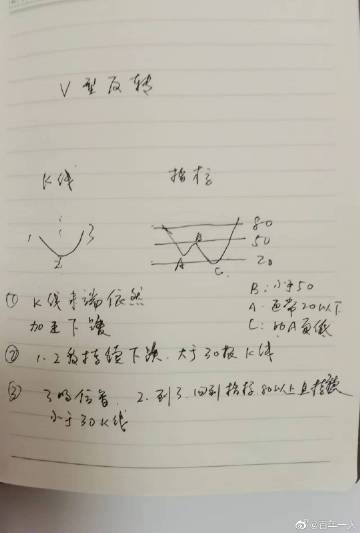 V型反转
K线 指标
1 2 3
80
50
20
A B C
B:小于50
A:通常20以下
C:比A更低
① K线末端依然
加速下跌
② 1.2段持续下跌.大于30根K线
③ 3的位置 2.到3.回到指标80以上且持续
小于30K线
@百年一人